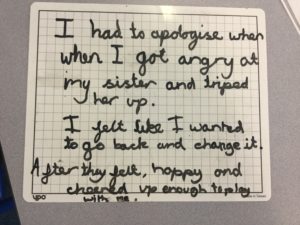 I had to apologise when
when I got angry at
my sister and triped
her up.
I felt like I wanted
to go back and change it.
After they felt, happy and
cheered up enough to play
with me.